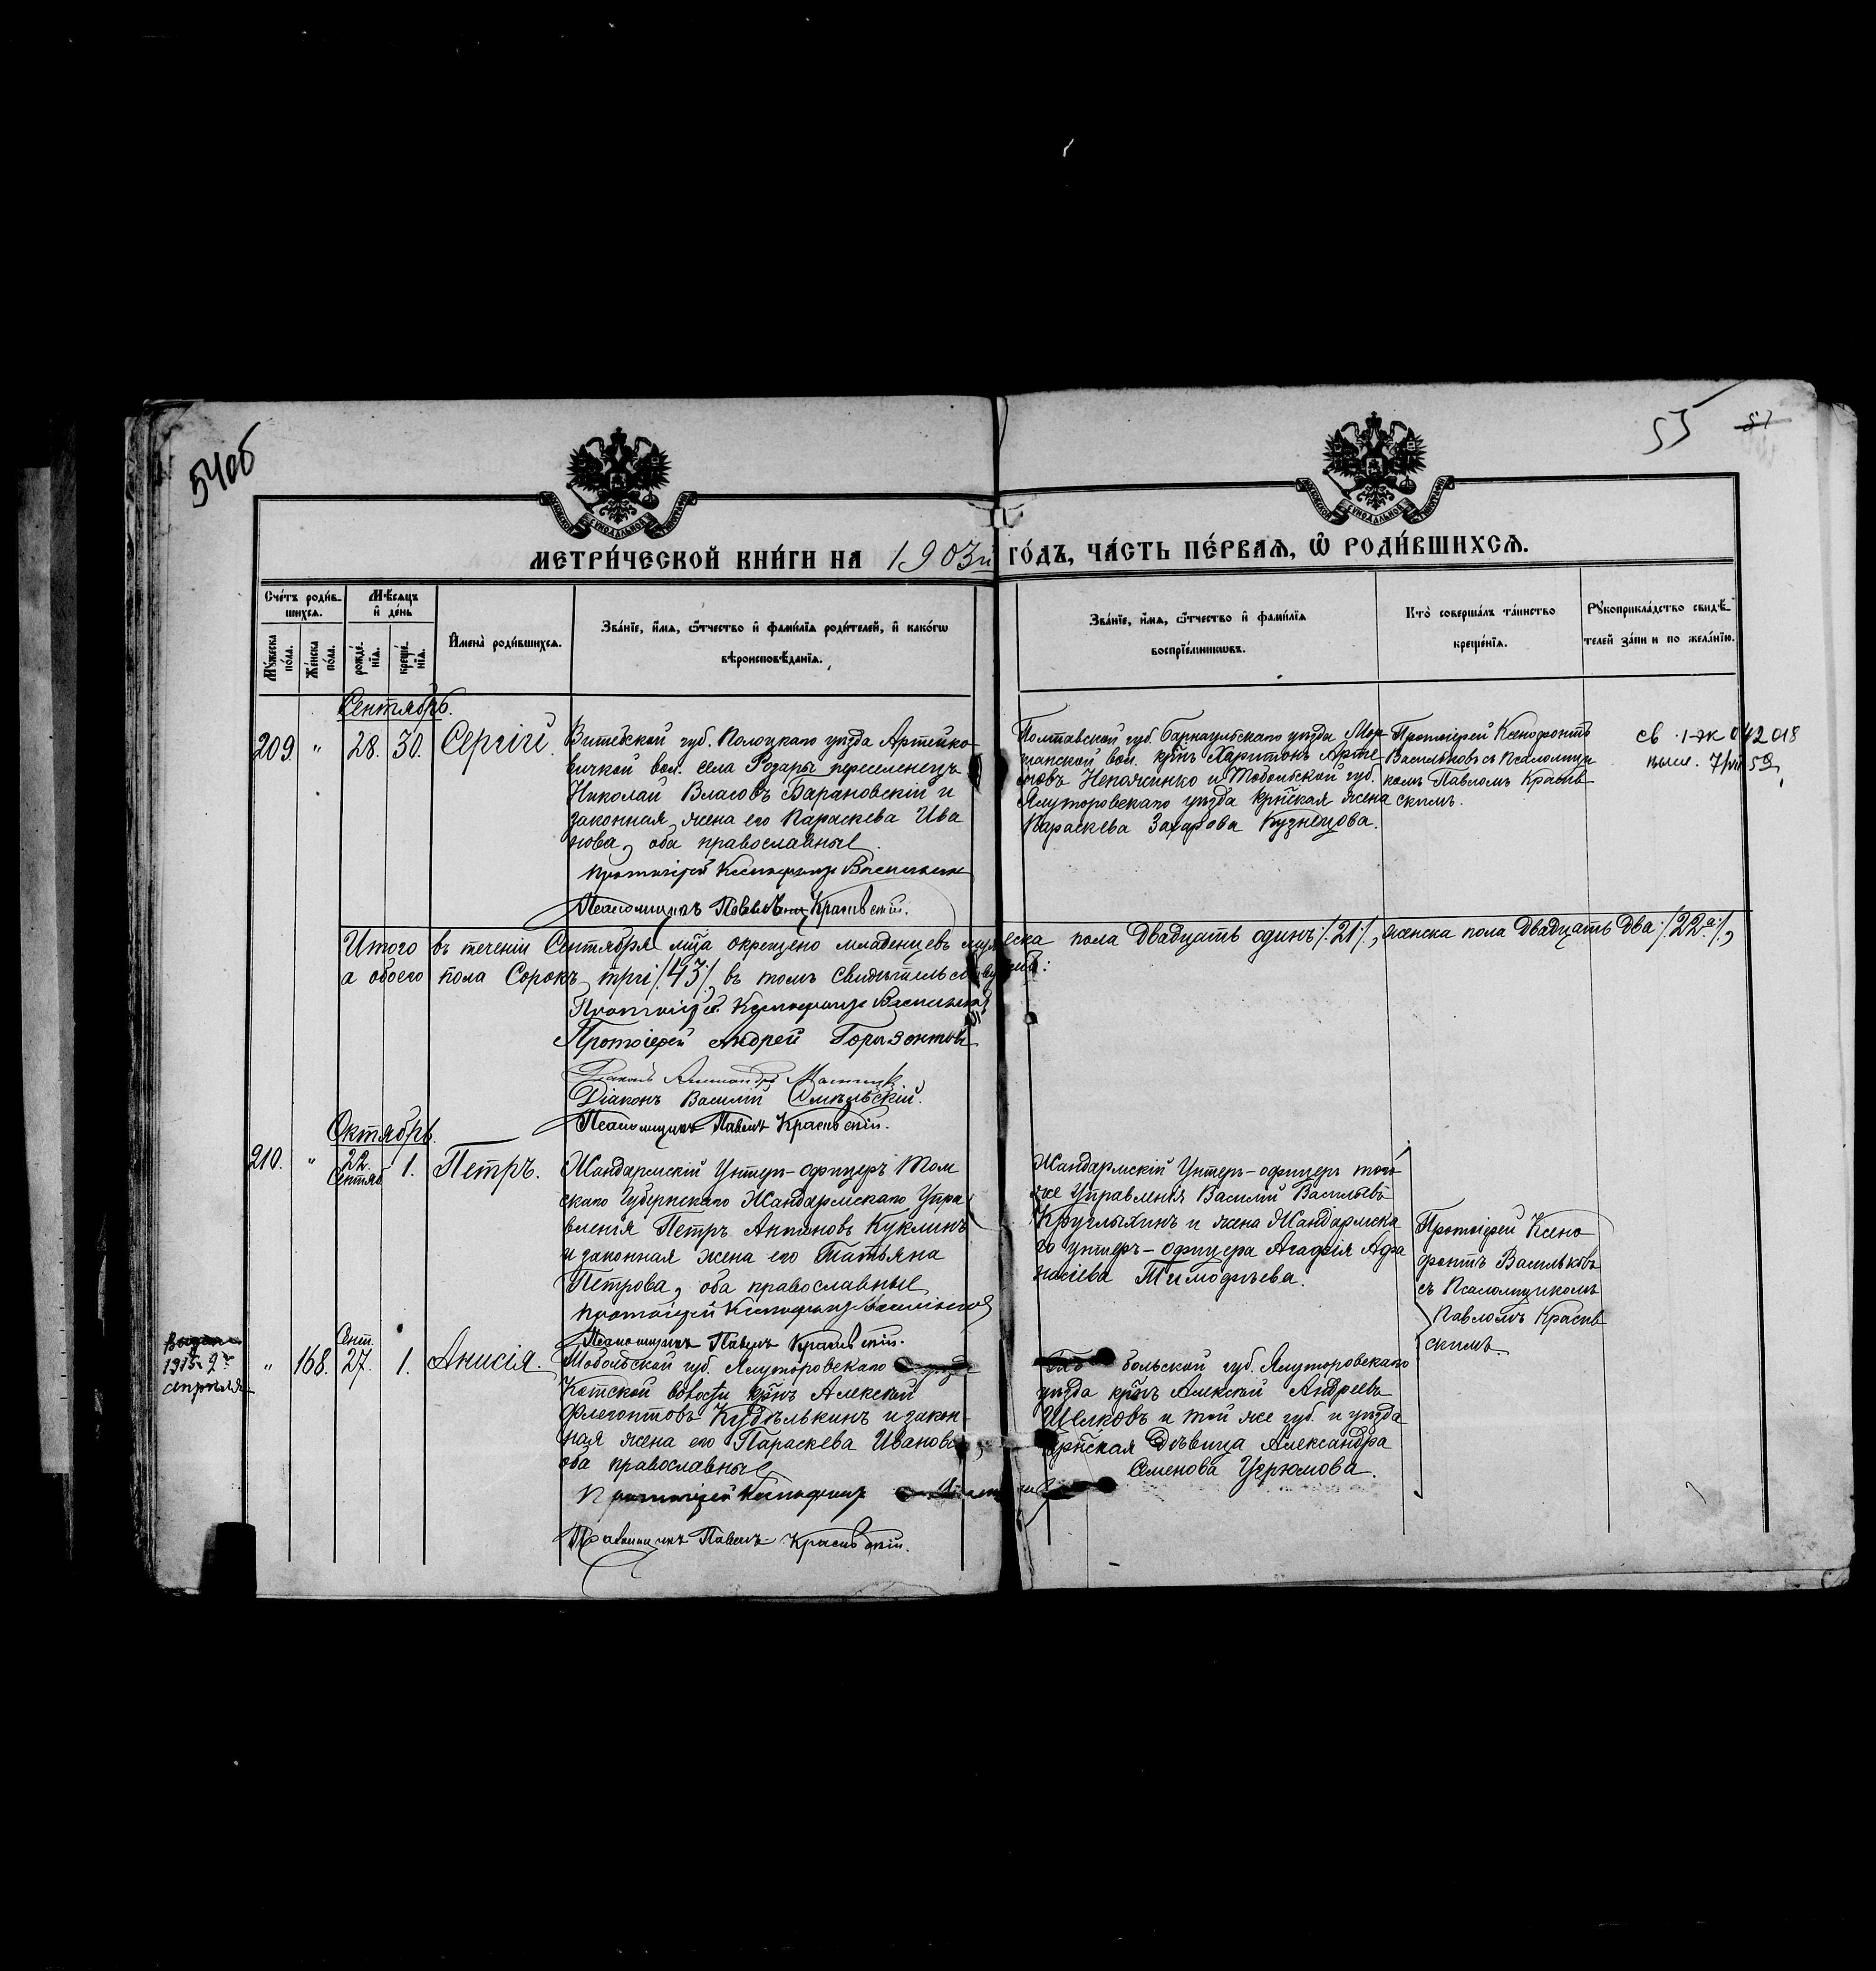 54об
55
МЕТРИ́ЧЕСКОЙ КНИ́ГИ НА 1903й ГО́ДЪ, ЧА́СТЬ ПЕ́РВАѦ, Ѽ РОДИ́ВШИХСѦ.
Сче́тъ роди́в-
шихсѧ.
Мꙋ́жеска по́ла.
Же́нска по́ла.
Мѣ́сѧцъ
и де́нь
рожде́-
нїѧ.
креще́-
нїѧ.
Имена̀ роди́вшихсѧ.
Зва́нїе, и́мѧ, ѻ́тчество и фами́лїѧ роди́телей, и како́гѡ
вѣроисповѣ́данїѧ.
Зва́нїе, и́мѧ, ѻ́тчество и фами́лїѧ
воспрїе́мникѡвъ.
Кто̀ соверша́лъ та́инство
креще́нїѧ.
Рꙋкоприкла́дство свидѣ́-
телей за́пи и по жела́нїю.
Сентябрь.
209. " 28. 30. Сергій.
Витебской губ. Полоцкаго уѣзда Артейко-
вичкой вол. села Розары переселенецъ
Николай Власовъ Барановскій и
законная жена его Параскева Ива
нова, оба православные.
Протоіерей Ксенофонтъ Васильковъ
Псаломщикъ Павелъ Красивскій.
Полтавской губ. Барнаульскаго уѣзда
шанской вол. крнъ Харитонъ Арте
мовъ и Тобольской губ.
Ялуторовскаго уѣзда крнская жена
Параскева Захарова Кузнецова.
Протоіерей Ксенофонтъ
Васильковъ съ Псаломщи
комъ Павломъ Красив
скимъ.
св. 1-эк 042018
выс. 7/VII 59
Итого въ теченіи Сентября мца окрещено младенцевъ мужеска пола Двадцать одинъ /:21:/, женска пола Двадцать два /:22а:/,
а обоего пола Сорокъ три /:43:/, въ томъ свидѣтельствуемъ:
Протоіерей Ксенофонтъ Васильковъ
Протоіерей Андрей Горизонтовъ
Діаконъ
Діаконъ Василій Смѣльскій.
Псаломщикъ Павелъ Красивскій.
Октябрь.
210. " 22. Сентяб 1. Петръ.
Жандармскій Унтеръ-офицеръ Том
скаго Губернскаго Жандармскаго Упра
вленія Петръ Антиновъ Куклинъ
и законная жена его Татьяна
Петрова, оба православные
Протоіерей Ксенофонтъ Васильковъ
Псаломщикъ Павелъ Красивскій.
Жандармскій Унтеръ-офицеръ того
же Управленія Василій Васильевъ
Круглыхинъ и жена Жандармска
го унтеръ-офицера Агафія Афа
насіева Тимофѣева.
Протоіерей Ксено
фонтъ Васильковъ
съ Псаломщикомъ
Павломъ Красив
скимъ.
1915 г 9го
апрѣля
" 168. Сент. 27. 1. Анисія.
Тобольской губ. Ялуторовскаго
волости крнъ Алексѣй
Флегонтовъ Кудѣлькинъ и закон-
ная жена его Параскева Иванова,
оба православные
Протоіерей Ксенофонтъ
Псаломщикъ Павелъ Красивскій.
Тобольской губ. Ялуторовскаго
уѣзда крнъ Алексѣй Андреевъ
Щелковъ и той же губ. и уѣзда
крнская Дѣвица Александра
Семенова Угрюмова.